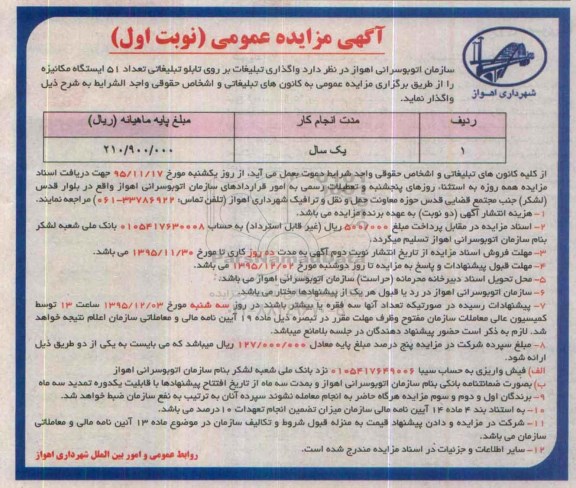 آگهی مزایده عمومی (نوبت اول)
شهرداری اهواز
سازمان اتوبوسرانی اهواز در نظر دارد واگذاری تبلیغات بر روی تابلو تبلیغاتی تعداد ۵۱ ایستگاه مکانیزه
را از طریق برگزاری مزایده عمومی به کانون های تبلیغاتی و اشخاص حقوقی واجد الشرایط به شرح ذیل
واگذار نماید.
ردیف مدت انجام کار مبلغ پایه ماهیانه (ریال)
۱ یک سال ۲۱۰/۹۰۰/۰۰۰
از کلیه کانون های تبلیغاتی و اشخاص حقوقی واجد شرایط دعوت بعمل می آید، از روز یکشنبه مورخ ۹۵/۱۱/۱۷ جهت دریافت اسناد
مزایده همه روزه به استثناء روزهای پنجشنبه و تعطیلات رسمی به امور قراردادهای سازمان اتوبوسرانی اهواز واقع در بلوار قدس
(لشکر) جنب مجتمع قضایی قدس حوزه معاونت حمل و نقل و ترافیک شهرداری اهواز (تلفن تماس: ۳۳۷۸۶۹۲۲-۰۶۱) مراجعه نمایند.
۱- هزینه انتشار آگهی (دو نوبت) به عهده برنده مزایده می باشد.
۲- اسناد مزایده در مقابل پرداخت مبلغ ۵۰۰/۰۰۰ ریال (غیر قابل استرداد) به حساب ۰۱۰۵۴۱۷۶۳۰۰۰۸ بانک ملی شعبه لشکر
بنام سازمان اتوبوسرانی اهواز تسلیم میگردد.
۳- مهلت فروش اسناد مزایده از تاریخ انتشار نوبت دوم آگهی به مدت ده روز کاری تا مورخ ۱۳۹۵/۱۱/۳۰ می باشد.
۴- مهلت قبول پیشنهادات و پاسخ به مزایده تا روز دوشنبه مورخ ۱۳۹۵/۱۲/۰۲ می باشد.
۵- محل تحویل اسناد دبیرخانه محرمانه (حراست) سازمان اتوبوسرانی اهواز می باشد.
۶- سازمان اتوبوسرانی اهواز در رد یا قبول هر یک از پیشنهادها مختار می باشد.
۷- پیشنهادات رسیده در صورتیکه تعداد آنها سه فقره یا بیشتر باشند در روز سه شنبه مورخ ۱۳۹۵/۱۲/۰۳ ساعت ۱۳ توسط
کمیسیون عالی معاملات سازمان مفتوح وظرف مهلت مقرر در تبصره ذیل ماده ۱۹ آیین نامه مالی و معاملاتی سازمان اعلام نتیجه خواهد
شد. لازم به ذکر است حضور پیشنهاد دهندگان در جلسه بلامانع میباشد.
۸- مبلغ سپرده شرکت در مزایده پنج درصد مبلغ پایه معادل ۱۲۷/۰۰۰/۰۰۰ ریال میباشد که می بایست به یکی از دو طریق ذیل
ارائه شود.
الف) فیش واریزی به حساب سیبا ۰۱۰۵۴۱۷۶۴۹۰۰۶ نزد بانک ملی شعبه لشکر بنام سازمان اتوبوسرانی اهواز
ب) بصورت ضمانتنامه بانکی بنام سازمان اتوبوسرانی اهواز و بمدت سه ماه از تاریخ افتتاح پیشنهادها با قابلیت یکدوره تمدید سه ماه
۹- برندگان اول و دوم و سوم مزایده هرگاه حاضر به انجام معامله نشوند سپرده آنان به ترتیب به نفع سازمان ضبط خواهد شد.
۱۰- به استناد بند ۴ ماده ۱۴ آیین نامه مالی سازمان میزان تضمین انجام تعهدات ۱۰درصد می باشد.
۱۱- شرکت در مزایده و دادن پیشنهاد قیمت به منزله قبول شروط و تکالیف سازمان در موضوع ماده ۱۳ آئین نامه مالی و معاملاتی
سازمان می باشد.
۱۲- سایر اطلاعات و جزئیات در اسناد مزایده مندرج شده است.
روابط عمومی و امور بین الملل شهرداری اهواز